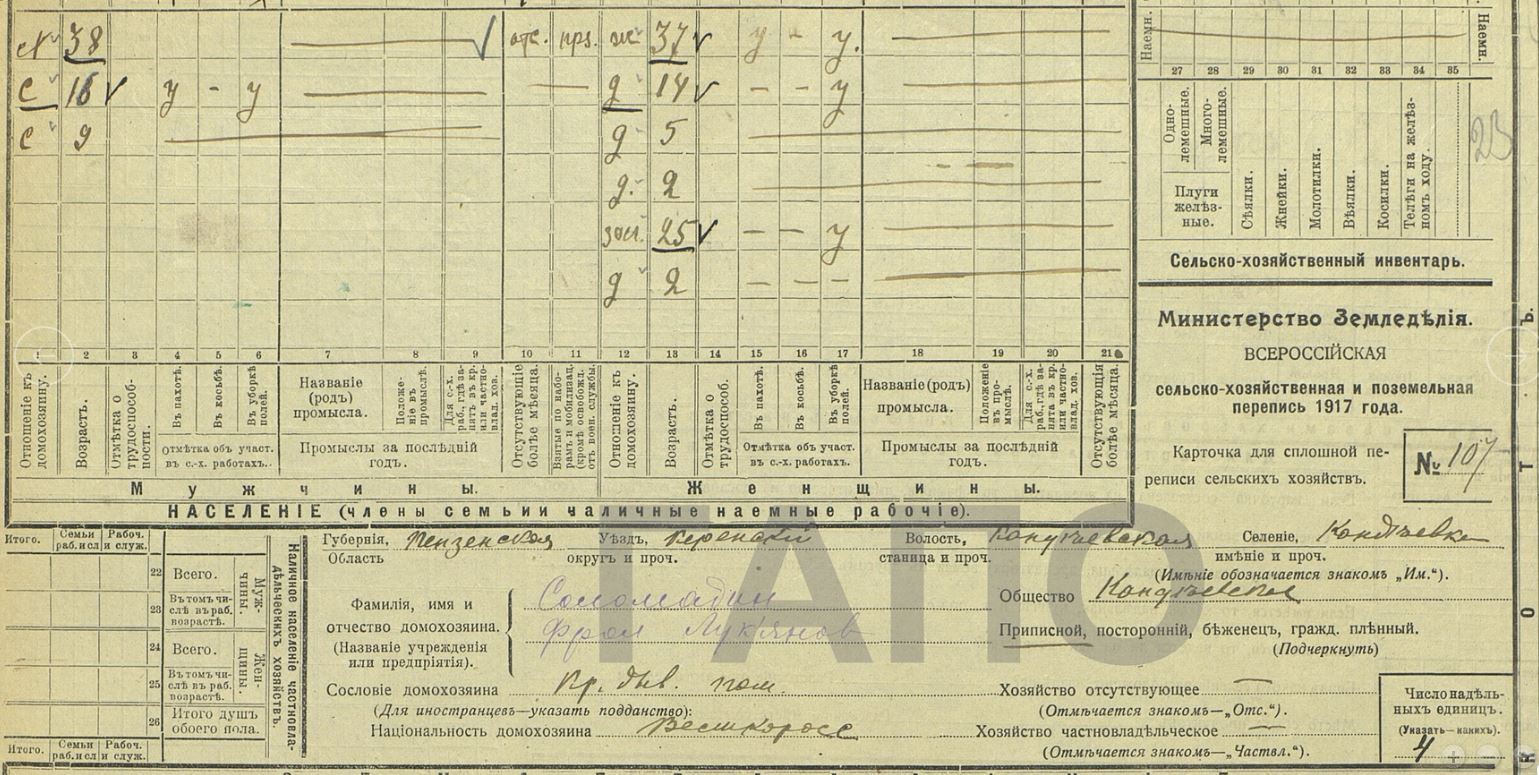 х 38 отс. прз. ж 37 у - у.
с 16 у - у д 14 - - у
с 9 д 5
д. 2
25 - - у
д 2 - - -
1 2 3 4 5 6 7 8 9 10 11 12 13 14 15 16 17 18 19 20 21
Отношеніе къ домохозяину.
Возрастъ.
Отмѣтка о трудоспособ-ности.
Въ пахотѣ.
Въ косьбѣ.
Въ уборкѣ полей.
Отмѣтка объ участ. въ с.-х. работахъ.
Названіе (родъ) промысла.
Положе-ніе въ промыслѣ.
Для с.-х. раб., гдѣ за-нятъ въ кр. или частно-влад. хоз.
Промыслы за послѣдній годъ.
Отсутствующіе болѣе мѣсяца.
Взятые по набо-рамъ и мобилизац. (кромѣ освобожд. отъ воен. службы.
Отношеніе къ домохозяину.
Возрастъ.
Отмѣтка о трудоспособ.
Въ пахотѣ.
Въ косьбѣ.
Въ уборкѣ полей.
Отмѣтка объ участ. въ с.-х. работахъ.
Названіе (родъ) промысла.
Положеніе въ про-мыслѣ.
Для с.-х. раб., гдѣ за-нята въ кр. или частно-влад. хоз.
Промыслы за послѣдній годъ.
Отсутствующія болѣе мѣсяца.
Мужчины. Женщины.
НАСЕЛЕНІЕ (члены семьи и наличные наемные рабочіе).
Наемн. Наемн.
27 28 29 30 31 32 33 34 35
Одно-лемешные.
Много-лемешные.
Плуги желѣз-ные.
Сѣялки.
Жнейки.
Молотилки.
Вѣялки.
Косилки.
Телѣги на желѣз-номъ ходу.
23
Сельско-хозяйственный инвентарь.
Министерство Земледѣлія.
ВСЕРОССІЙСКАЯ
сельско-хозяйственная и поземельная
перепись 1917 года.
Карточка для сплошной пе-
реписи сельскихъ хозяйствъ.
№ 107
Итого. Семьи раб. и сл. Рабоч. и служ.
22 Всего.
23 Въ томъ чи-слѣ въ раб. возрастѣ.
Муж-чины.
24 Всего.
25 Въ томъ чи-слѣ въ раб. возрастѣ.
Жен-щины.
26 Итого душъ обоего пола.
Итого. Семьи раб. и сл. Рабоч. и служ.
Наличное населеніе частновла-дѣльческихъ хозяйствъ.
Губернія, Пензенская Уѣздъ, Керенскій Волость, Кондѣевская Селеніе, Кондѣевка
Область округъ и проч. станица и проч. имѣніе и проч.
(Имѣніе обозначается знакомъ „Им.“).
Фамилія, имя и Соломадин Общество Кондѣевское
отчество домохозяина. Фрол Лукьянов Приписной, посторонній, бѣженецъ, гражд. плѣнный.
(Названіе учрежденія (Подчеркнуть)
или предпріятія).
Сословіе домохозяина Кр. быв. пом. Хозяйство отсутствующее —
(Для иностранцевъ—указать подданство): (Отмѣчается знакомъ—„Отс.“).
Національность домохозяина Великоросс Хозяйство частновладѣльческое —
(Отмѣчается знакомъ—„Частвл.“).
Число надѣль-
ныхъ единицъ.
(Указать—какихъ).
4
ГАПО